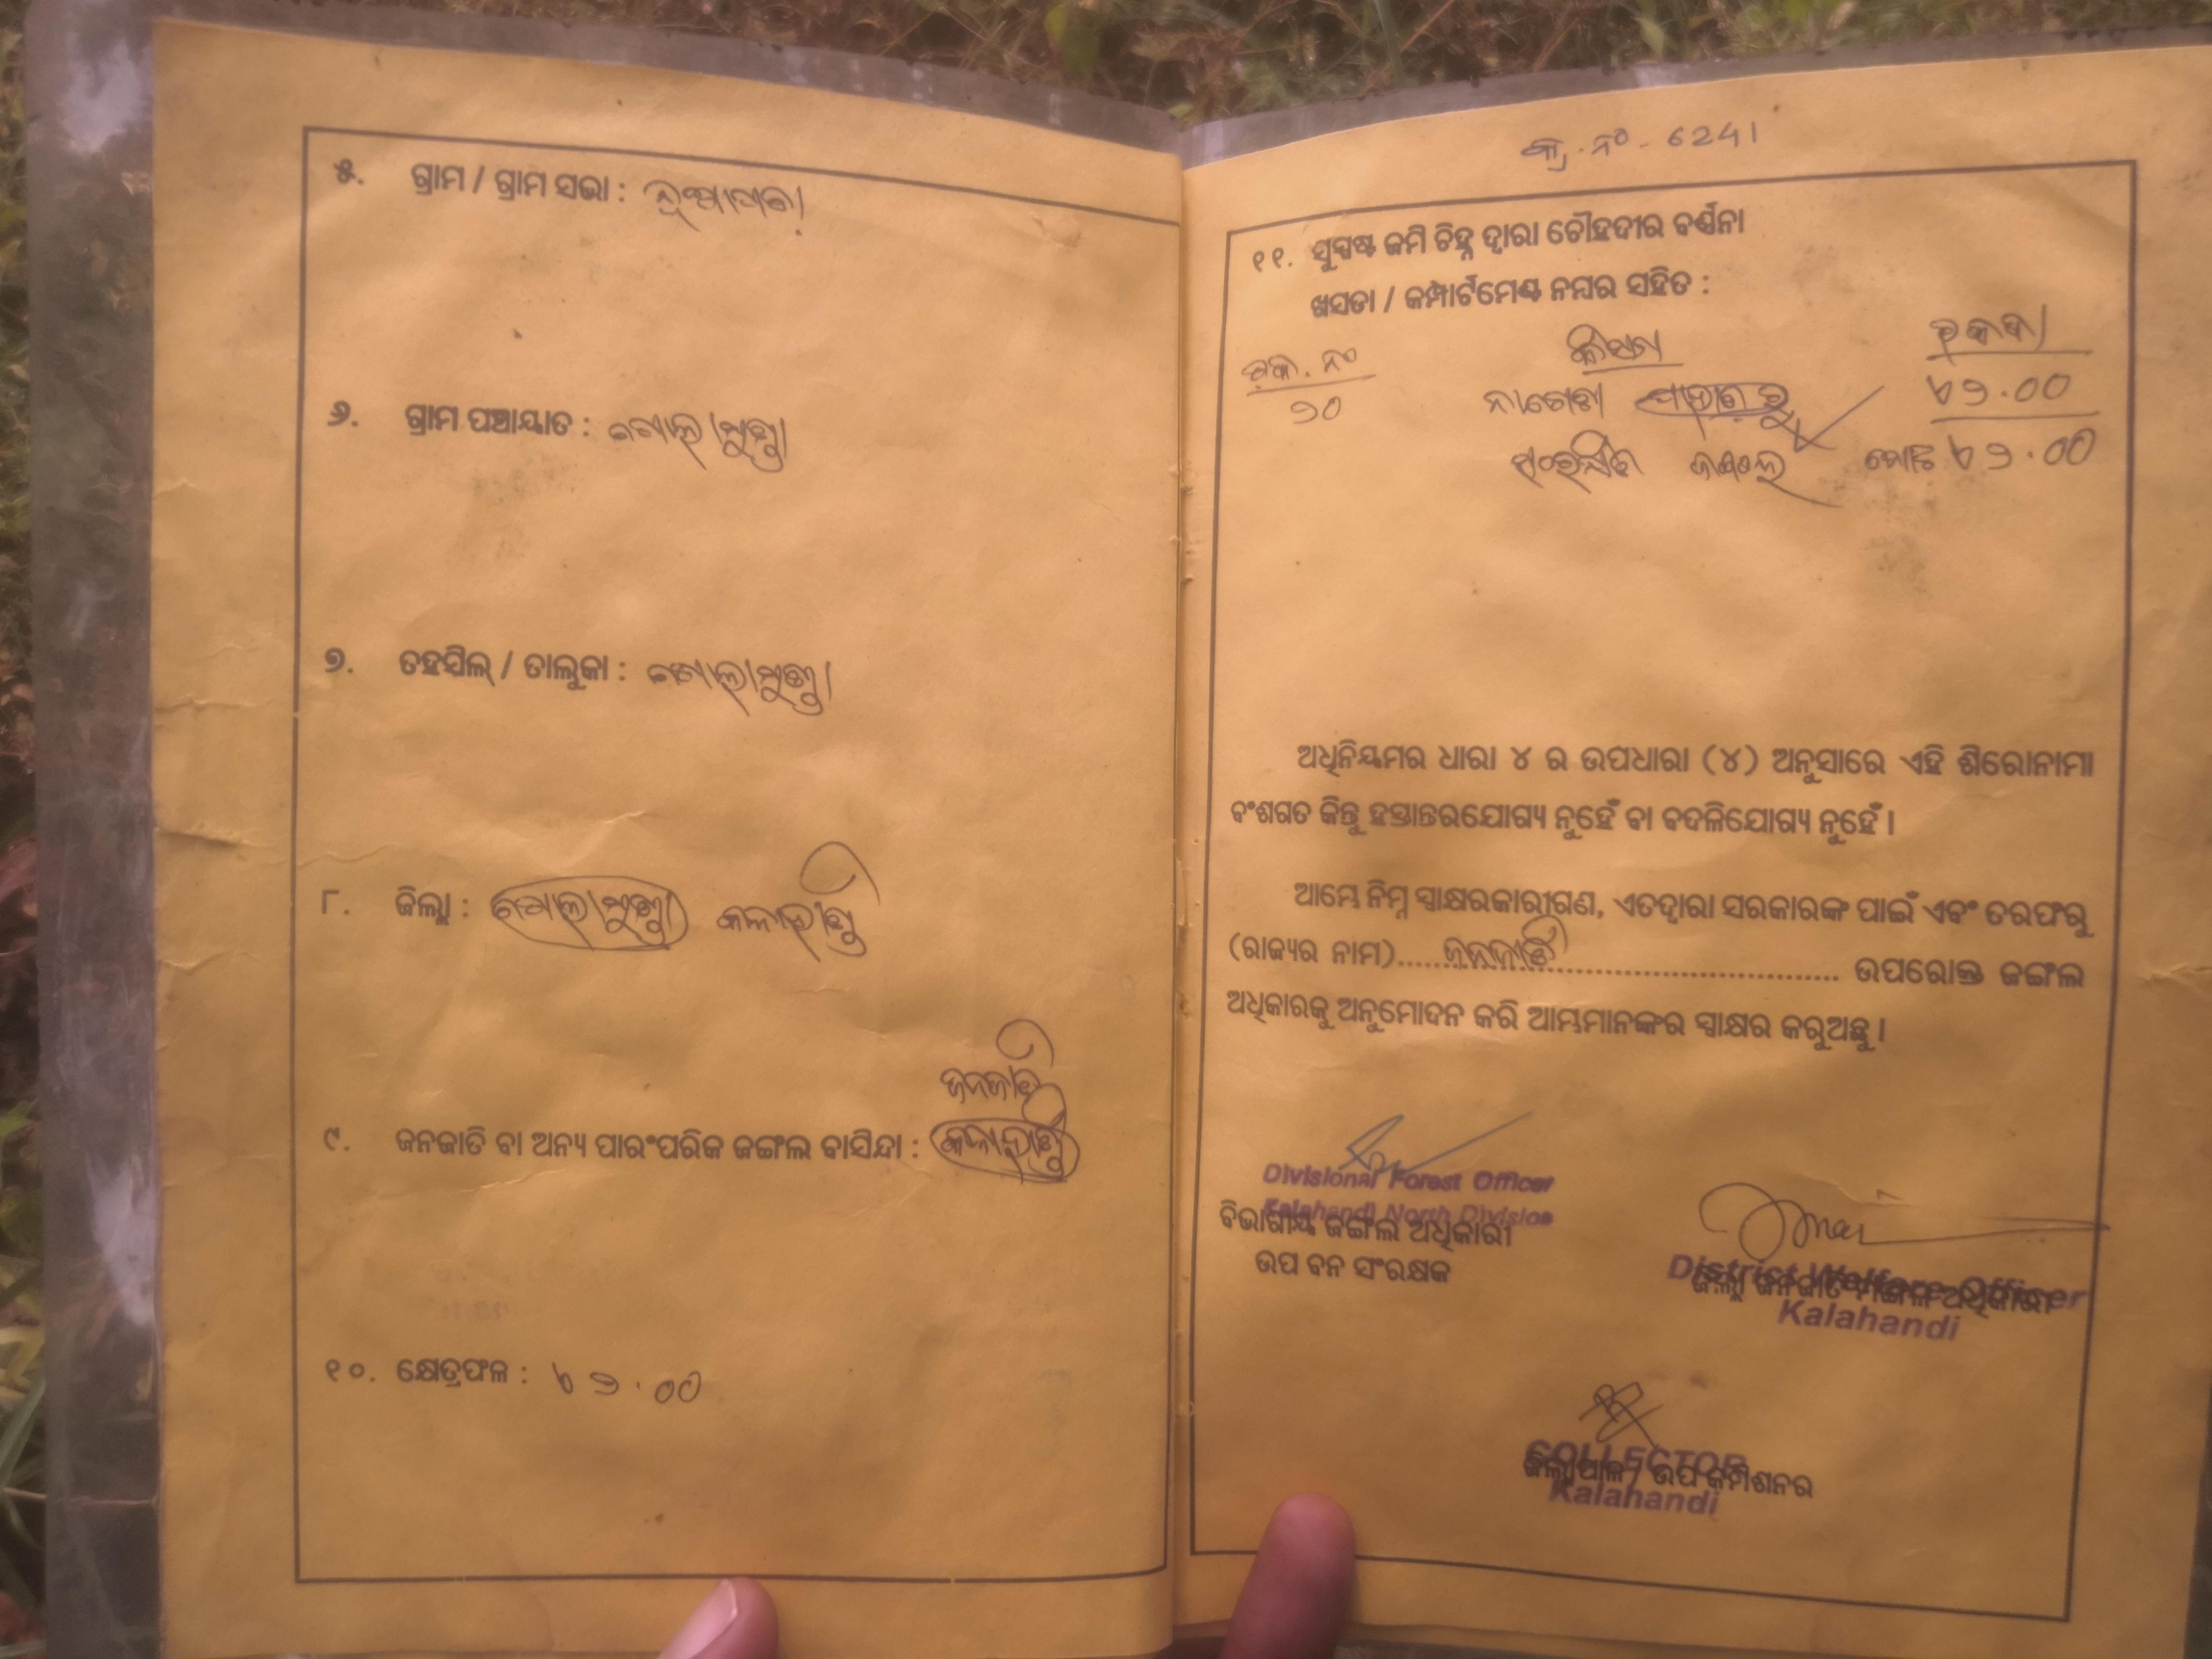 ୫. ଗ୍ରାମ / ଗ୍ରାମ ସଭା : ନୂଆପଡା
୬. ଗ୍ରାମ ପଞ୍ଚାୟାତ : ଗୋଲାମୁଣ୍ଡା
୭. ତହସିଲ୍ / ତାଲୁକା : ଗୋଲାମୁଣ୍ଡା
୮. ଜିଲ୍ଲା : ଗୋଲାମୁଣ୍ଡା କଳାହାଣ୍ଡି
ଜନଜାତି
୯. ଜନଜାତି ବା ଅନ୍ୟ ପାରଂପରିକ ଜଙ୍ଗଲ ବାସିନ୍ଦା : କଳାହାଣ୍ଡି
୧୦. କ୍ଷେତ୍ରଫଳ : ୭୨.୦୦
କ୍ର.ନଂ - 6241
୧୧. ସୁସ୍ପଷ୍ଟ ଜମି ଚିହ୍ନ ଦ୍ୱାରା ଚୌହଦୀର ବର୍ଣ୍ଣନା
ଖସଡା / କମ୍ପାର୍ଟମେଣ୍ଟ ନମ୍ବର ସହିତ :
କିସମ ରକବା
ସଂରକ୍ଷିତ ଜଙ୍ଗଲ ମୋଟ
ଅଧିନିୟମର ଧାରା ୪ ର ଉପଧାରା (୪) ଅନୁସାରେ ଏହି ଶିରୋନାମା
ବଂଶଗତ କିନ୍ତୁ ହସ୍ତାନ୍ତରଯୋଗ୍ୟ ନୁହେଁ ବା ବଦଳିଯୋଗ୍ୟ ନୁହେଁ ।
ଆମ୍ଭେ ନିମ୍ନ ସ୍ୱାକ୍ଷରକାରୀଗଣ, ଏତଦ୍ୱାରା ସରକାରଙ୍କ ପାଇଁ ଏବଂ ତରଫରୁ
(ରାଜ୍ୟର ନାମ)..... ଜନଜାତି ..... ଉପରୋକ୍ତ ଜଙ୍ଗଲ
ଅଧିକାରକୁ ଅନୁମୋଦନ କରି ଆମ୍ଭମାନଙ୍କର ସ୍ୱାକ୍ଷର କରୁଅଛୁ ।
Divisional Forest Officer
Kalahandi North Division
ବିଭାଗୀୟ ଜଙ୍ଗଲ ଅଧିକାରୀ
ଉପ ବନ ସଂରକ୍ଷକ
District Welfare Officer
ଜିଲ୍ଲା ଜନଜାତି ମଙ୍ଗଳ ଅଧିକାରୀ
Kalahandi
COLLECTOR
ଜିଲ୍ଲାପାଳ / ଉପ କମିଶନର
Kalahandi